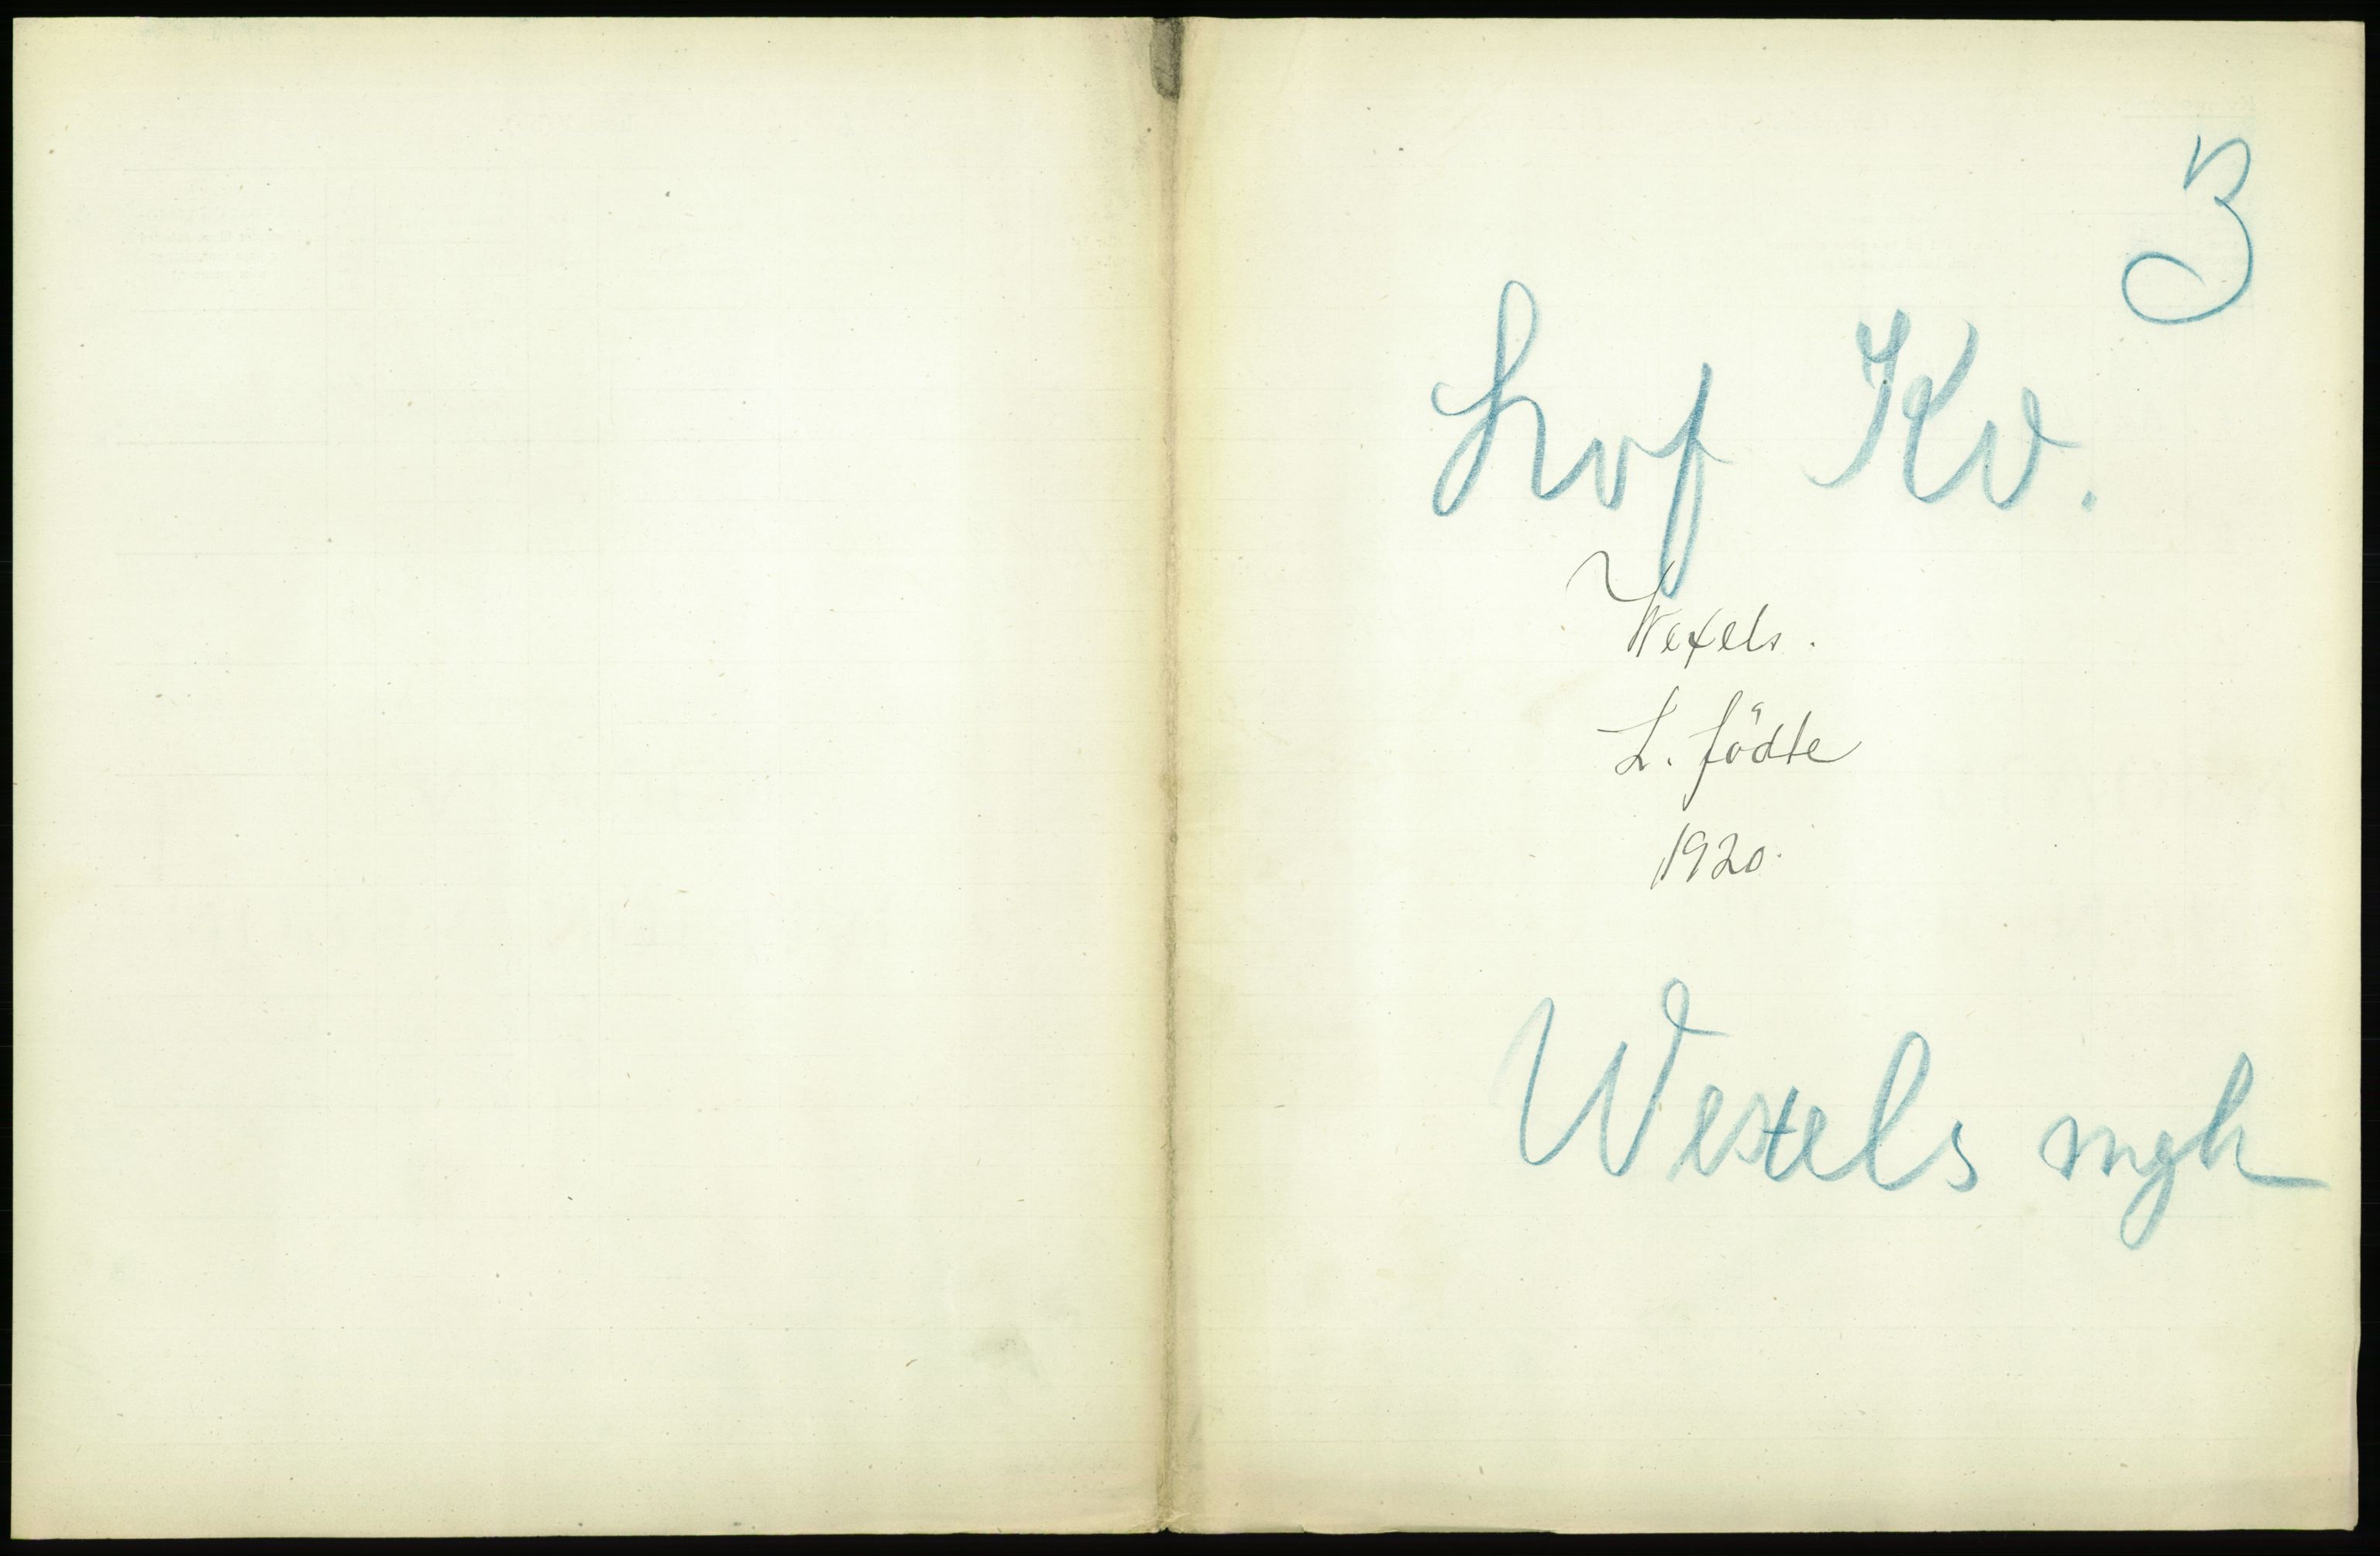 3
Lvf Kv.
Wexels.
L. födte
1920.
Wexels mgh